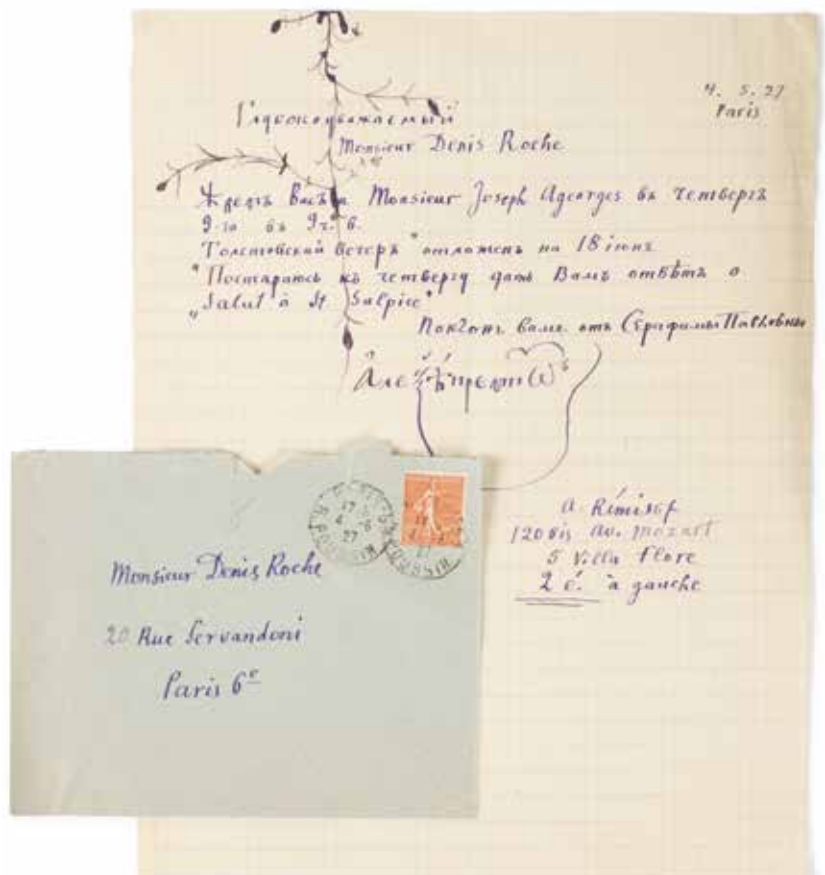 4. 5. 27
Paris
Глубокоуважаемый
Monsieur Denis Roche
Ждемъ Васъ и Monsieur Joseph Ageorges въ четвергъ
9-го въ 9 ч. в.
"Толстовскій вечеръ" отложенъ на 18 іюня
Постараюсь къ четвергу дать Вамъ отвѣтъ о
„Salut à St Sulpice"
Поклонъ Вамъ отъ Серафимы Павловны
A. Rémisof
120 bis Av. Mozart
5 Villa Flore
2 é. à gauche
17 30
4 - 6
27
Monsieur Denis Roche
20 Rue Servandoni
Paris 6e